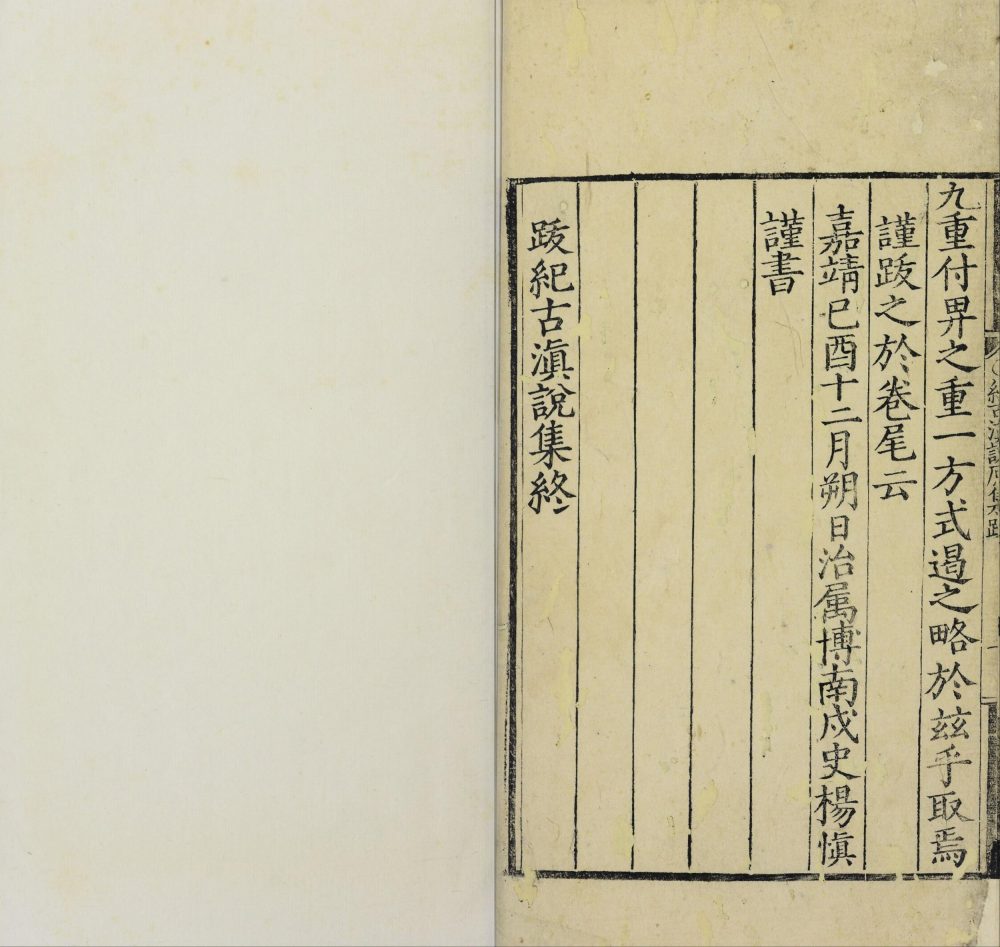 九重付畀之重一方式遏之略於兹乎取焉
謹跋之於卷尾云
嘉靖己酉十二月朔日治属博南戍史楊慎
謹書
跋紀古滇說集終